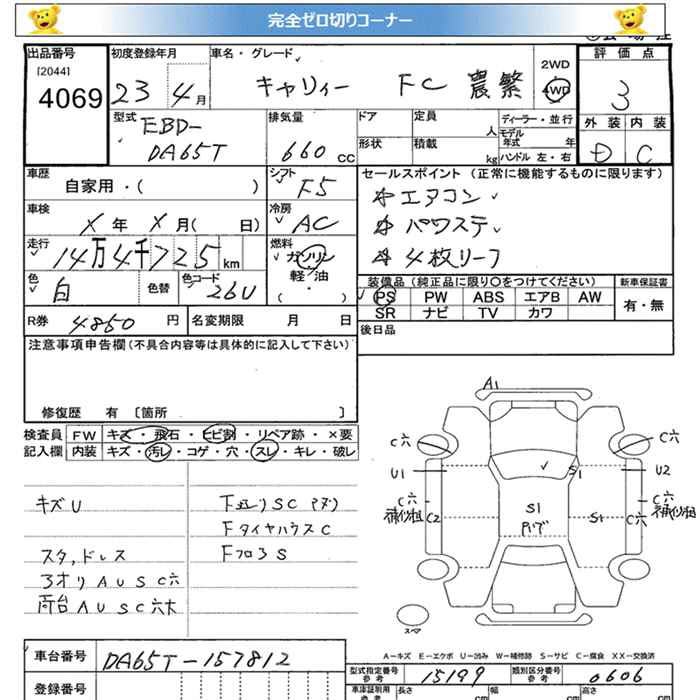 完全ゼロ切りコーナー
出品番号 初度登録年月 車名・グレード 2WD 評価点
[2044]
4069 23年4月 キャリィー FC 農繁 4WD 3
型式 EBD-DA65T 排気量 660cc ドア 定員 人 ディーラー・並行 外装 内装
形状 積載 kg モデル年式 年 ハンドル 左・右 D C
車歴 自家用・( ) シフト F5
セールスポイント(正常に機能するものに限ります)
エアコン
パワステ
4枚リーフ
車検 X年 X月( 日) 冷房 AC
走行 14万4千725km 燃料 ガソリン 軽油 ( )
色 白 色替 色コード 26U
装備品(純正品に限り〇をつけてください) 新車保証書
PS PW ABS エアB AW 有・無
SR ナビ TV カワ
R券 4850円 名変期限 月 日 後日品
注意事項申告欄(不具合内容等は具体的に記入して下さい)
修復歴 有 [箇所 ]
検査員 FW キズ・飛石・ヒビ割・リペア跡・×要
記入欄 内装 キズ・汚レ・コゲ・穴・スレ・キレ・破レ
キズU
スタッドレス
F タイヤハウスC
Fフロ3S
A1
C穴 C穴
U1 S1 U2
C穴 S1 C穴
C2 S1 C穴
スペア
A−キズ E−エクボ U−凹み W−補修跡 S−サビ C−腐食 XX−交換済
車台番号 DA65T-157812
型式指定番号 参考 15199 類別区分番号 参考 0606
登録番号
車庫証明用 参考 長さ cm 幅 cm 高さ cm